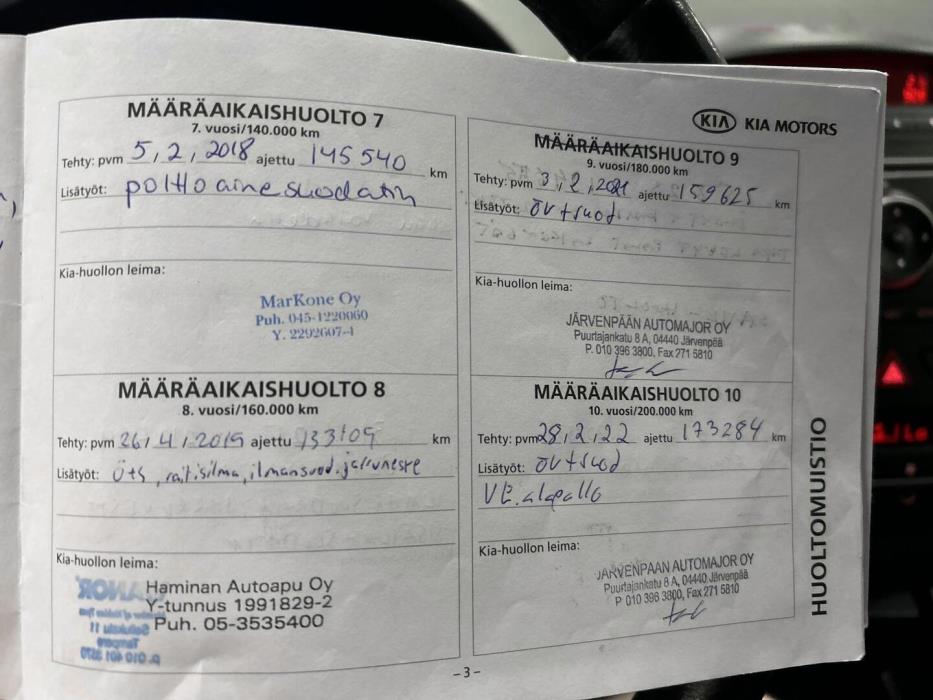 MÄÄRÄAIKAISHUOLTO 7
7. vuosi/140.000 km
Tehty: pvm 5,2,2018 ajettu 145 540 km
Lisätyöt: polttoainesuodatin
Kia-huollon leima:
MarKone Oy
Puh. 045-1220060
Y. 2292607-4
MÄÄRÄAIKAISHUOLTO 8
8. vuosi/160.000 km
Tehty: pvm 26/4/2019 ajettu km
Lisätyöt: öts, rait.silma, ilmansuod. jarruneste
Kia-huollon leima:
Haminan Autoapu Oy
Y-tunnus 1991829-2
Puh. 05-3535400
KIA KIA MOTORS
MÄÄRÄAIKAISHUOLTO 9
9. vuosi/180.000 km
Tehty: pvm 3,2,2021 ajettu 159625 km
Lisätyöt: öv+suod
Kia-huollon leima:
JÄRVENPÄÄN AUTOMAJOR OY
Puurtajankatu 8 A, 04440 Järvenpää
P. 010 396 3800, Fax 271 5810
MÄÄRÄAIKAISHUOLTO 10
10. vuosi/200.000 km
Tehty: pvm 28,2,22 ajettu 173284 km
Lisätyöt: öv+suod
VE. alapallo
Kia-huollon leima:
JÄRVENPÄÄN AUTOMAJOR OY
Puurtajankatu 8 A, 04440 Järvenpää
P 010 396 3800, Fax 271 5810
HUOLTOMUISTIO
-3-